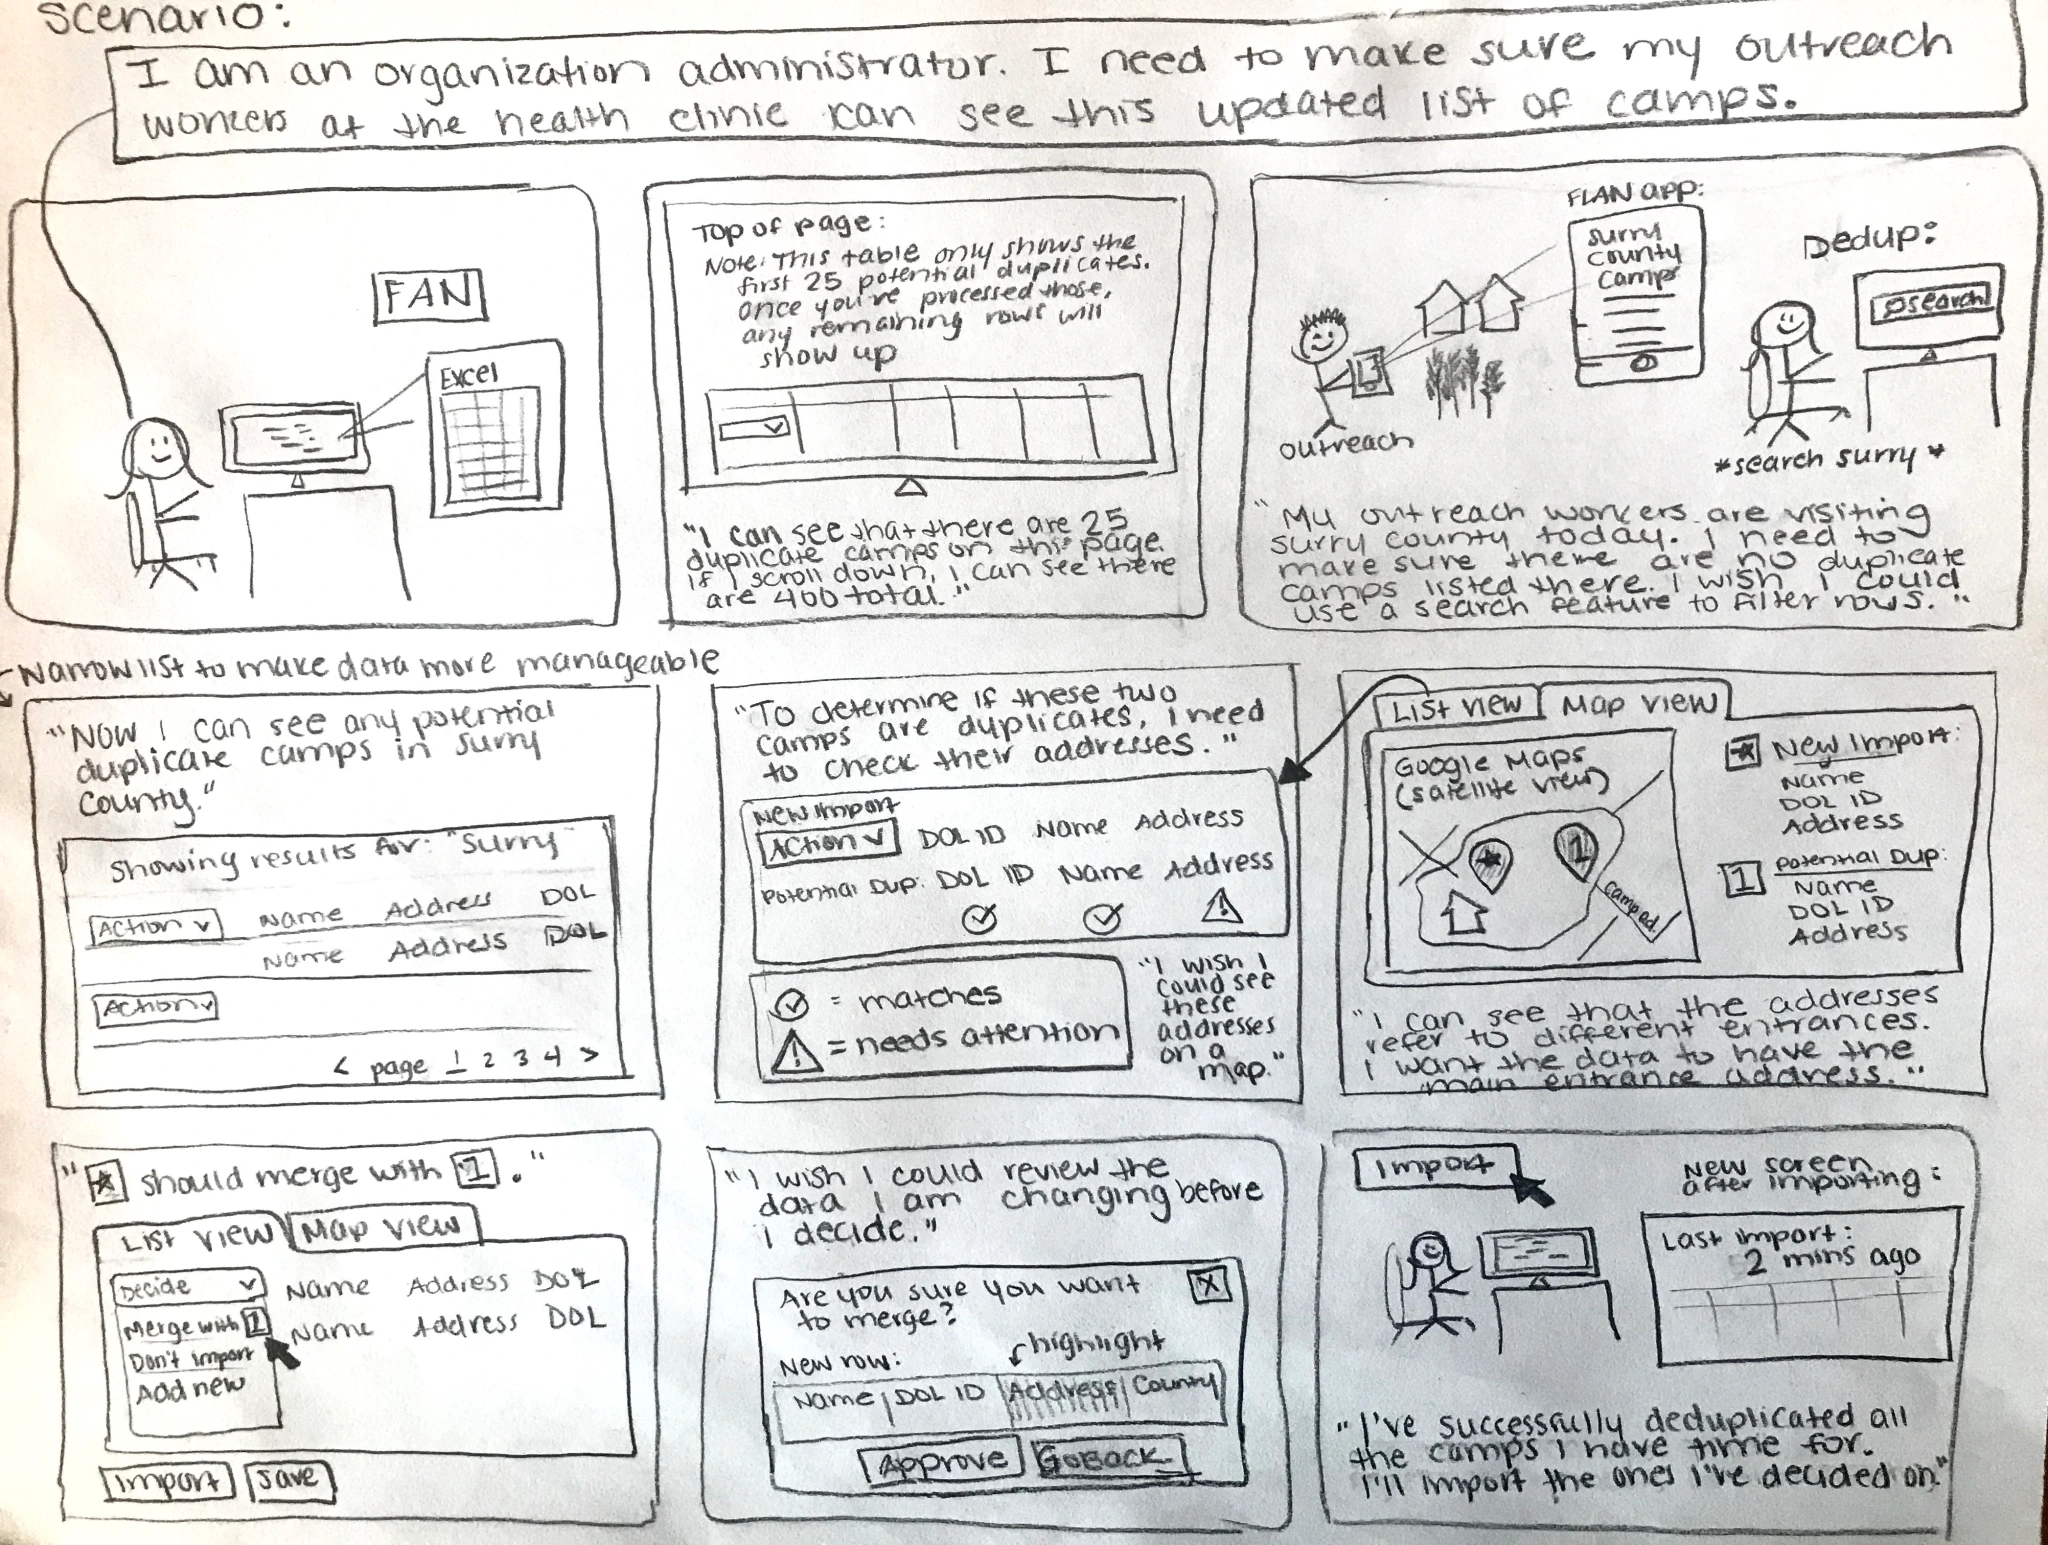 Scenario:
I am an organization administrator. I need to make sure my outreach
workers at the health clinic can see this updated list of camps.
FAN
Excel
Top of page:
Note: This table only shows the
first 25 potential duplicates.
once you've processed those,
any remaining rows will
show up
"I can see that there are 25
duplicate camps on this page.
If I scroll down, I can see there
are 400 total."
FLAN app:
Surry
county
camps
Dedup:
search
outreach
*search surry*
"My outreach workers are visiting
Surry county today. I need to
make sure there are no duplicate
camps listed there. I wish I could
use a search feature to filter rows."
Narrow list to make data more manageable
"Now I can see any potential
duplicate camps in Surry
County."
Showing results for: "Surry"
Action Name Address DOL
Name Address DOL
Action
< page 1 2 3 4 >
"To determine if these two
camps are duplicates, I need
to check their addresses."
New Import
Action DOL ID Name Address
Potential Dup: DOL ID Name Address
= matches
= needs attention
"I wish I
could see
these
addresses
on a
map."
List view Map view
Google Maps
(satellite view)
1
camp rd.
New Import:
Name
DOL ID
Address
1 Potential Dup:
Name
DOL ID
Address
"I can see that the addresses
refer to different entrances.
I want the data to have the
main entrance address."
"★ should merge with 1."
List view Map view
Decide Name Address DOL
Merge with 1 Name Address DOL
Don't import
Add new
Import Save
"I wish I could review the
data I am changing before
I decide."
Are you sure you want X
to merge?
highlight
New row:
Name DOL ID Address County
Approve Go Back
Import
New screen
after importing:
Last import:
2 mins ago
"I've successfully deduplicated all
the camps I have time for.
I'll import the ones I've decided on."